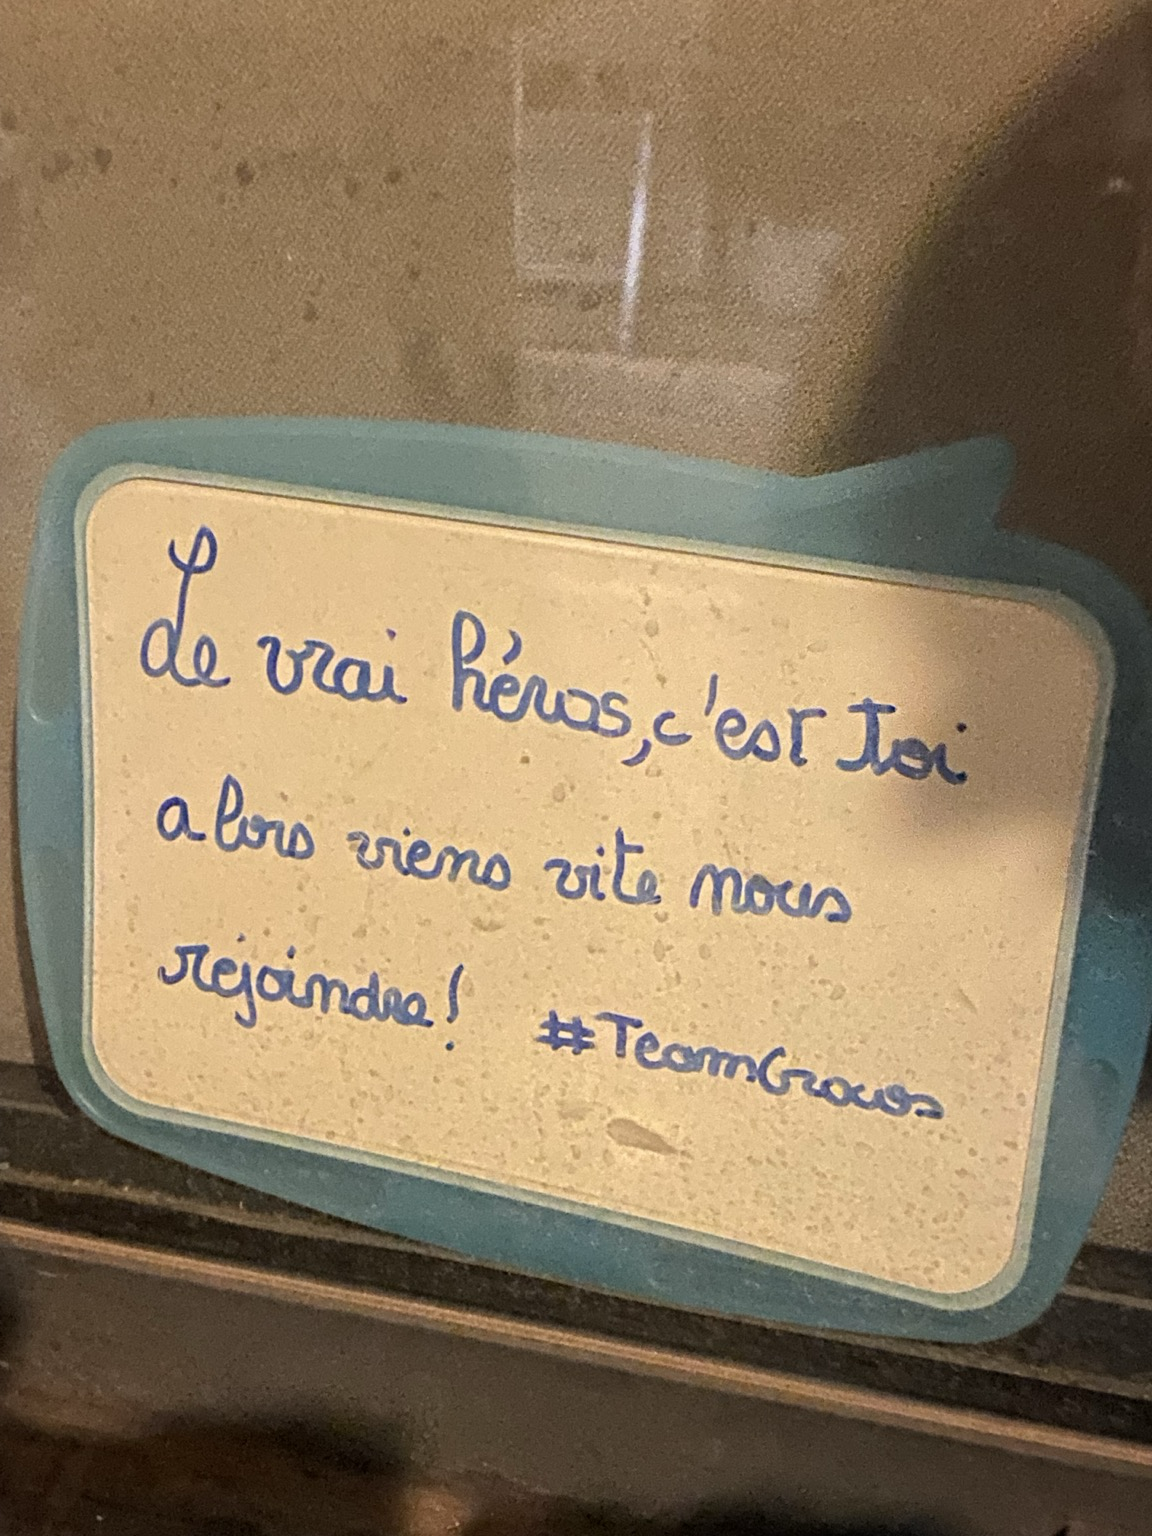 Le vrai héros, c'est toi
alors viens vite nous
rejoindre! #TeamGrows